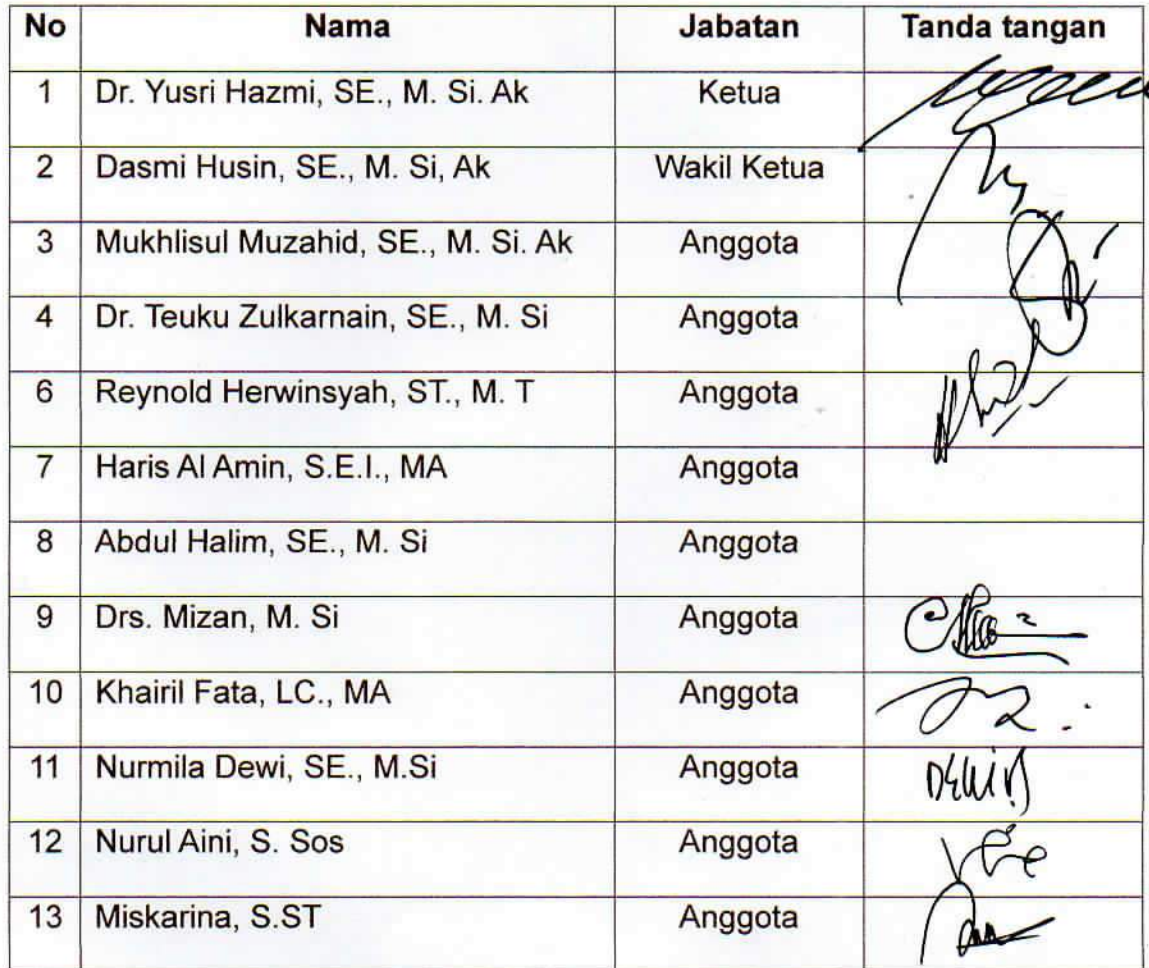 No Nama Jabatan Tanda tangan
1 Dr. Yusri Hazmi, SE., M. Si. Ak Ketua
2 Dasmi Husin, SE., M. Si, Ak Wakil Ketua
3 Mukhlisul Muzahid, SE., M. Si. Ak Anggota
4 Dr. Teuku Zulkarnain, SE., M. Si Anggota
6 Reynold Herwinsyah, ST., M. T Anggota
7 Haris Al Amin, S.E.I., MA Anggota
8 Abdul Halim, SE., M. Si Anggota
9 Drs. Mizan, M. Si Anggota
10 Khairil Fata, LC., MA Anggota
11 Nurmila Dewi, SE., M.Si Anggota
12 Nurul Aini, S. Sos Anggota
13 Miskarina, S.ST Anggota